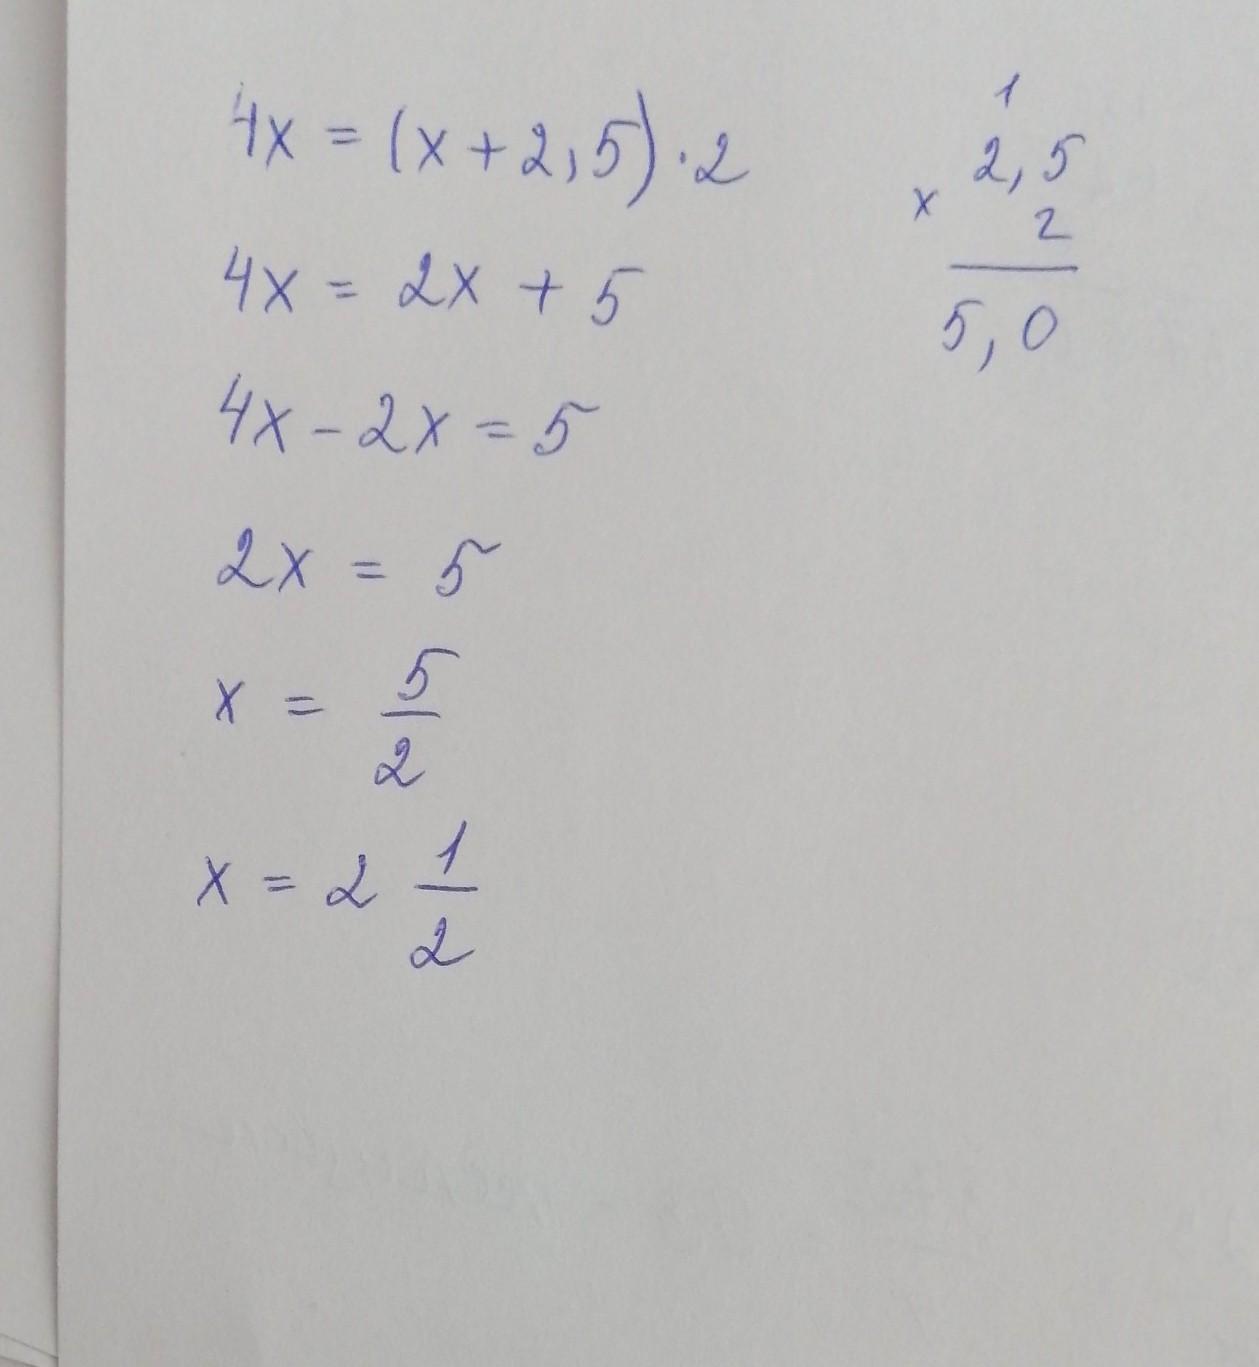 4x = (x + 2,5) · 2
4x = 2x + 5
4x - 2x = 5
2x = 5
x = 5/2
x = 2 1/2
1
2,5
x 2
5,0